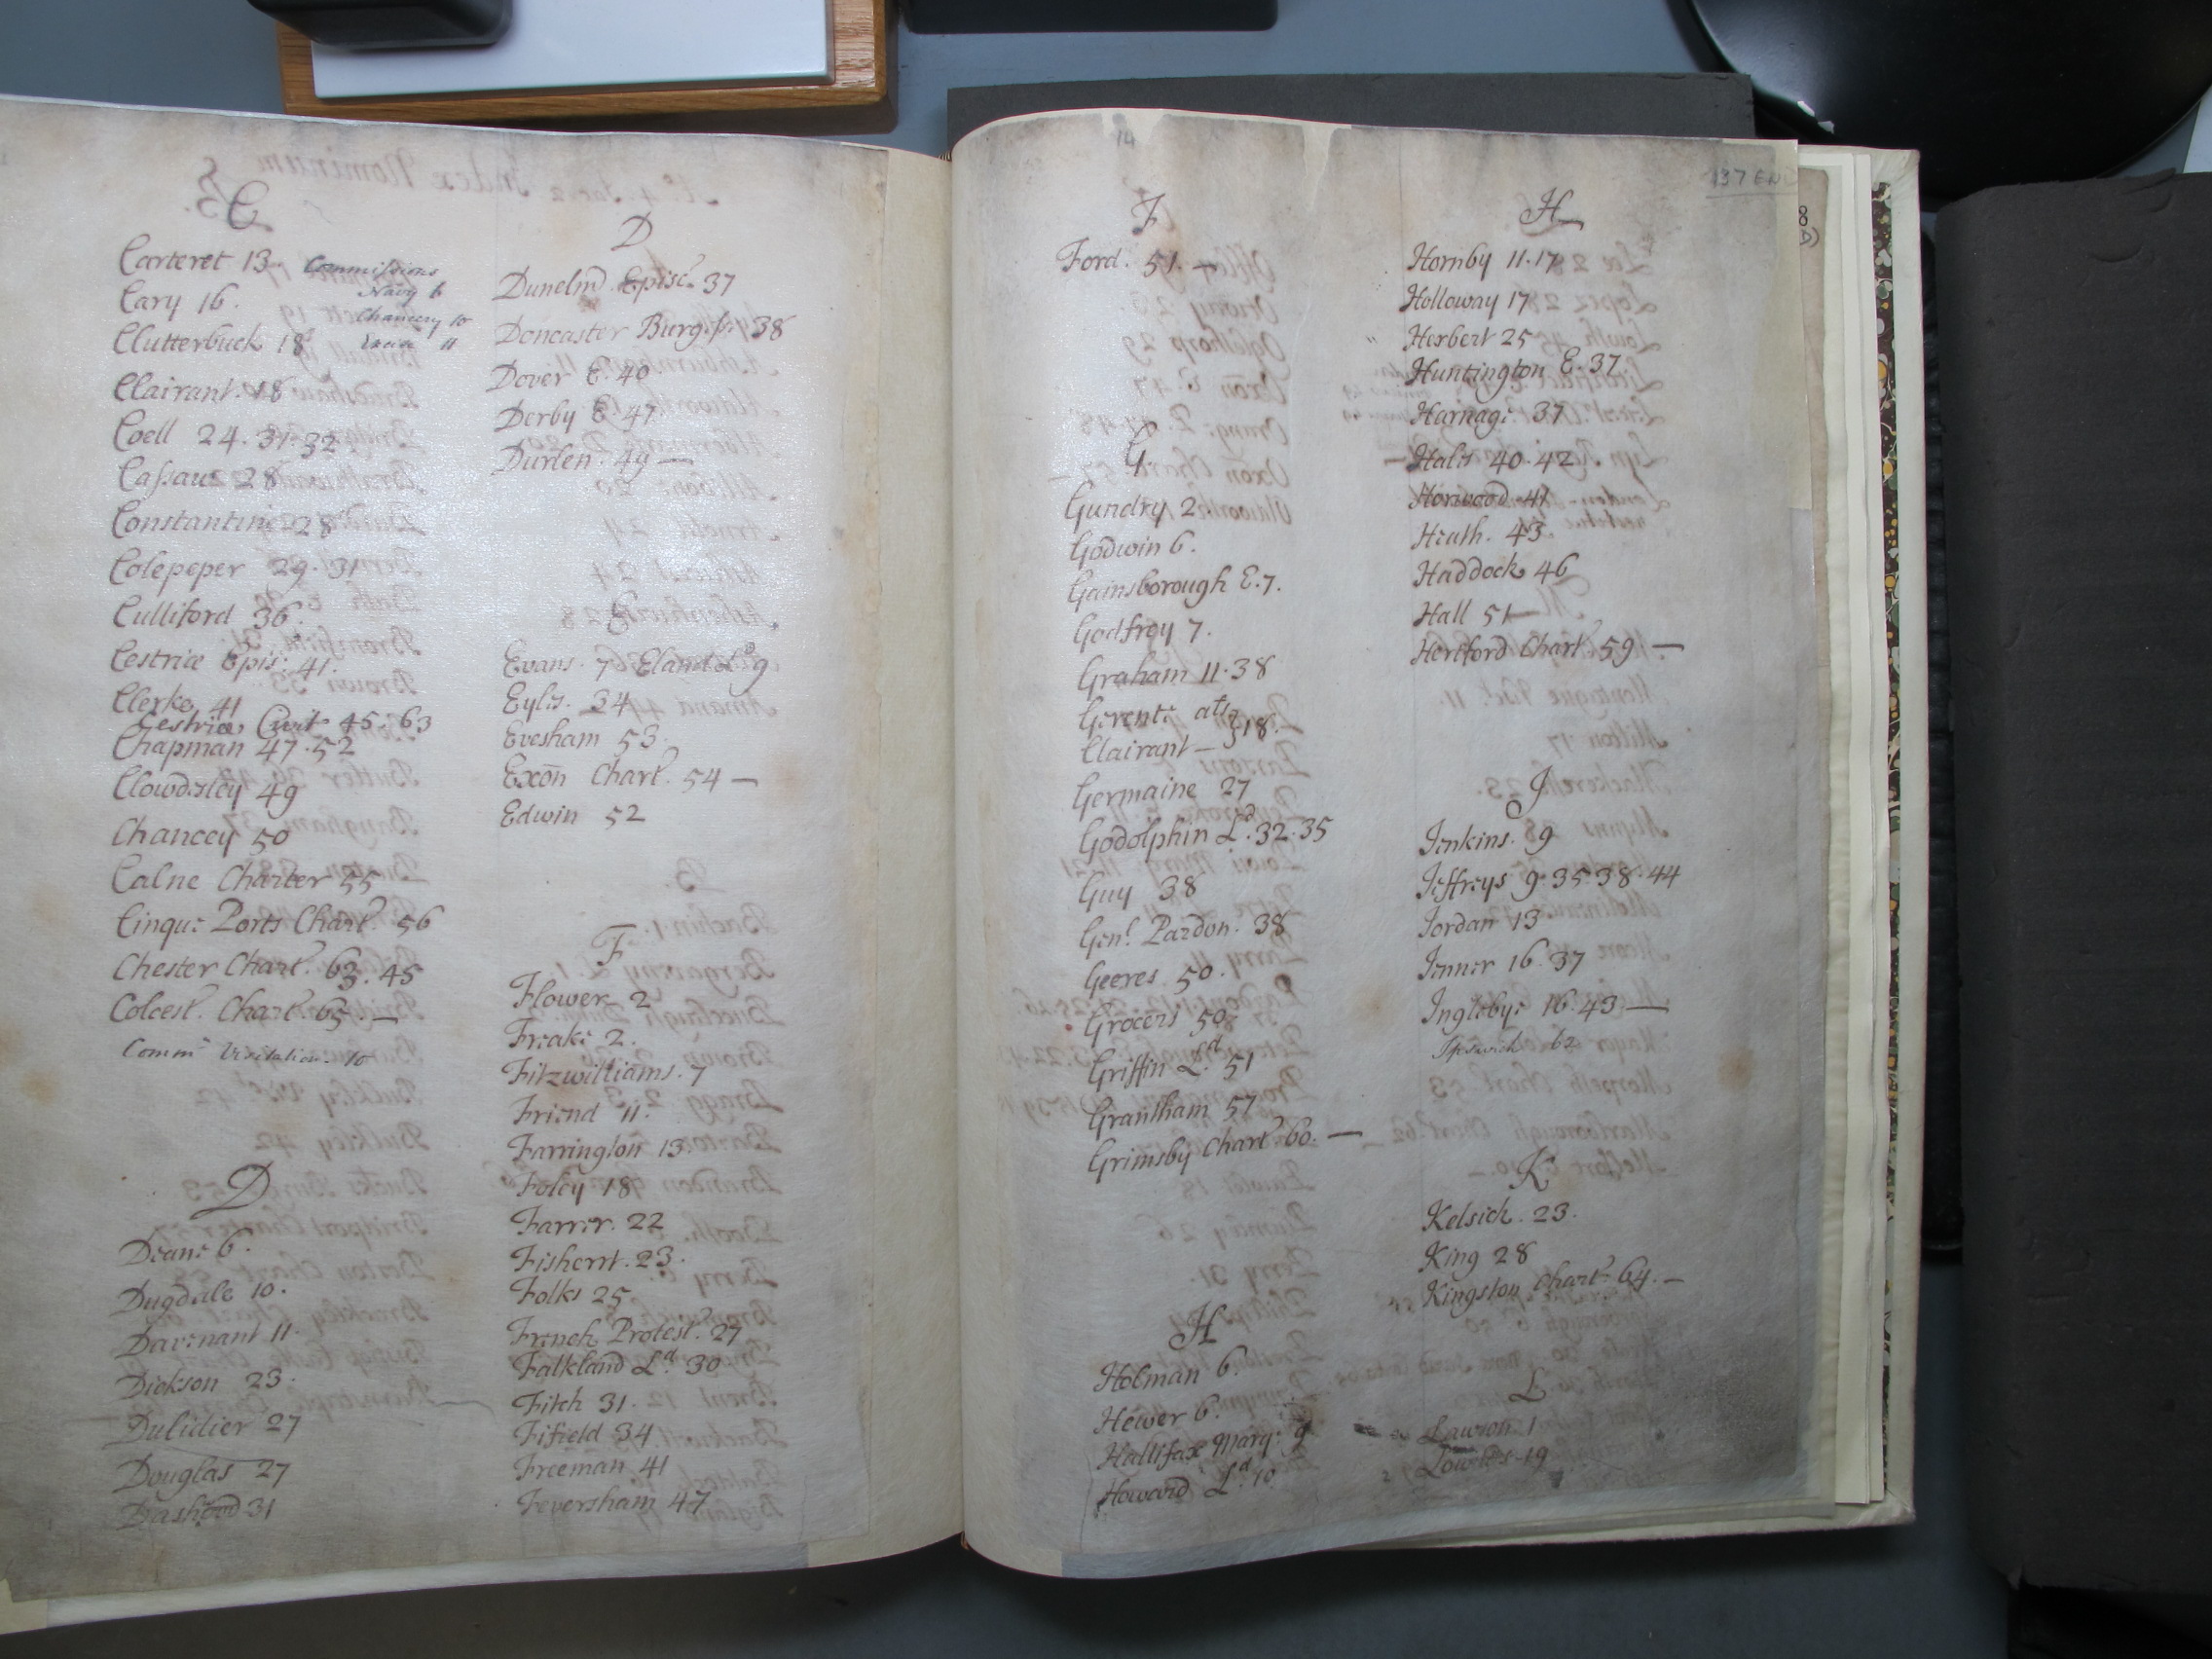 C
Carteret 13. Commissions
Navy 6
Cary 16.
Chancery 10
Clutterbuck 18
Clairant. 18
Coell 24. 31. 32
Cassaw 28
Constantine 28
Colepeper 29. 31
Culliford 36.
Cestriæ Epis: 41.
Clerke 41
Cestriæ Civit 45. 63
Chapman 47. 52
Clowdsley 49
Chancey 50
Calne Charter 55 —
Cinque Ports Chart. 56
Chester Chart. 63. 45
Colcest. Chart 65. —
Comm Visitation. 10
D
Deane 6.
Dugdale 10.
Davenant 11.
Dickson 23.
Dulidier 27
Douglas 27
Dashood 31
D
Dunelm Episc. 37
Doncaster Burg. 38
Dover E. 40
Derby E. 47
Durlen. 49 —
E
Evans. 7 Eland Ld 9
Eyles. 34
Evesham 53.
Exon Chart. 54 —
Edwin 52
F
Flower 2
Freake 2.
Fitzwilliams. 7
Friend 11.
Farrington 13.
Foley 18
Farrer. 22
Fisherst. 23.
Folks 25
French Protest. 27
Falkland Ld 30
Fitch 31.
Fifield 34
Freeman 41
Feversham 47
14
F
Ford. 51. —
G
Gundry 2.
Godwin 6.
Gainsborough E. 7.
Godfrey 7.
Graham 11. 38
Gerente als
Clairant — } 18.
Germaine 27
Godolphin Ld. 32. 35
Guy 38
Genl. Pardon. 38
Geeres. 50.
Grocers 50
Griffin Ld. 51
Grantham 57
Grimsby Chart 60. —
H
Holman 6.
Hewer 6.
Hallifax Marq: 9
Howard Ld. 10
137 END
H
Hornby 11. 17
Holloway 17
Herbert 25
Huntington E. 37
Harnage 37
Hales 40. 42
Horwood 41
Heath. 43.
Haddock 46
Hall 51
Hertford Chart 59 —
J
Jenkins. 9
Jeffreys 9. 35. 38. 44
Jordan 13
Jenner 16. 37
Inglebye 16. 43. —
Ipswich 62
K
Kelsick. 23.
King 28
Kingston Chart. 64. —
L
Lawson 1
Lowndes 19